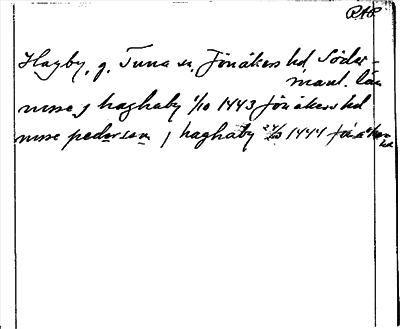 RAP.
Hagby, g. Tuna sn, Jönåkers hd Söder-
manl. län
nisse j haghaby 1/10 1443 Jönåkers hd
nisse pederson j haghaby 1444 Jönåkers
hd